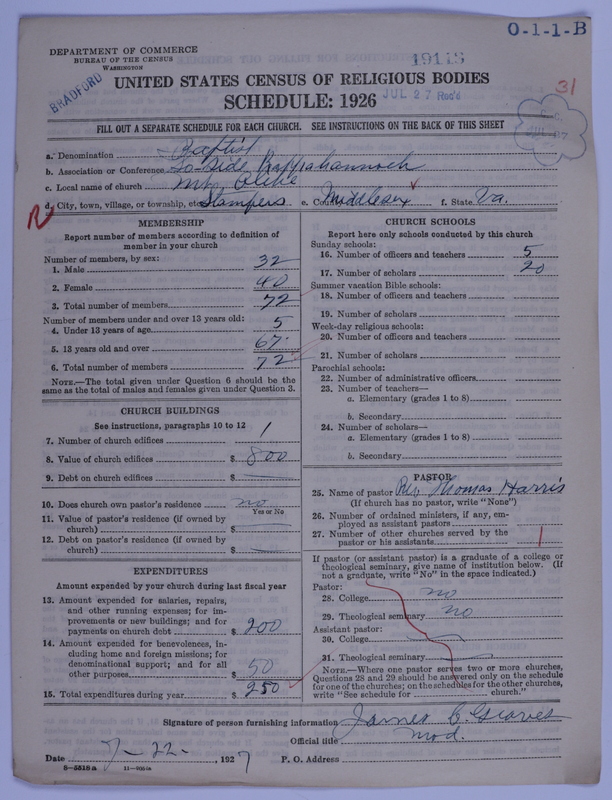 O-1-1-B
DEPARTMENT OF COMMERCE
BUREAU OF THE CENSUS
WASHINGTON
BRADFORD
19115
UNITED STATES CENSUS OF RELIGIOUS BODIES
SCHEDULE: 1926
JUL 27 Rec'd
31
FILL OUT A SEPARATE SCHEDULE FOR EACH CHURCH. SEE INSTRUCTIONS ON THE BACK OF THIS SHEET
a. Denomination Baptist
b. Association or Conference So-Side Rappahannock
c. Local name of church Mt. Olive
R
d. City, town, village, or township, etc. Stampers e. Co. Middlesex f. State Va.
MEMBERSHIP
Report number of members according to definition of
member in your church
Number of members, by sex:
1. Male 32
2. Female 40
3. Total number of members 72
Number of members under and over 13 years old:
4. Under 13 years of age 5
5. 13 years old and over 67
6. Total number of members 72
NOTE.—The total given under Question 6 should be the
same as the total of males and females given under Question 3.
CHURCH BUILDINGS
See instructions, paragraphs 10 to 12
7. Number of church edifices 1
8. Value of church edifices $ 800
9. Debt on church edifices $
10. Does church own pastor's residence no
Yes or No
11. Value of pastor's residence (if owned by
church) $
12. Debt on pastor's residence (if owned by
church) $
EXPENDITURES
Amount expended by your church during last fiscal year
13. Amount expended for salaries, repairs,
and other running expenses; for im-
provements or new buildings; and for
payments on church debt $ 200
14. Amount expended for benevolences, in-
cluding home and foreign missions; for
denominational support; and for all
other purposes $ 50
15. Total expenditures during year $ 250
CHURCH SCHOOLS
Report here only schools conducted by this church
Sunday schools:
16. Number of officers and teachers 5
17. Number of scholars 20
Summer vacation Bible schools:
18. Number of officers and teachers
19. Number of scholars
Week-day religious schools:
20. Number of officers and teachers
21. Number of scholars
Parochial schools:
22. Number of administrative officers
23. Number of teachers—
a. Elementary (grades 1 to 8)
b. Secondary
24. Number of scholars—
a. Elementary (grades 1 to 8)
b. Secondary
PASTOR
25. Name of pastor Rev. Thomas Harris
(If church has no pastor, write "None")
26. Number of ordained ministers, if any, em-
ployed as assistant pastors
27. Number of other churches served by the
pastor or his assistants 1
If pastor (or assistant pastor) is a graduate of a college or
theological seminary, give name of institution below. (If
not a graduate, write "No" in the space indicated.)
Pastor:
28. College no
29. Theological seminary no
Assistant pastor:
30. College
31. Theological seminary
NOTE.—Where one pastor serves two or more churches,
Questions 28 and 29 should be answered only on the schedule
for one of the churches; on the schedules for the other churches,
write "See schedule for church."
Signature of person furnishing information James C. Graves
Official title Mod.
Date 7-22-, 1927 P. O. Address
8-5518a